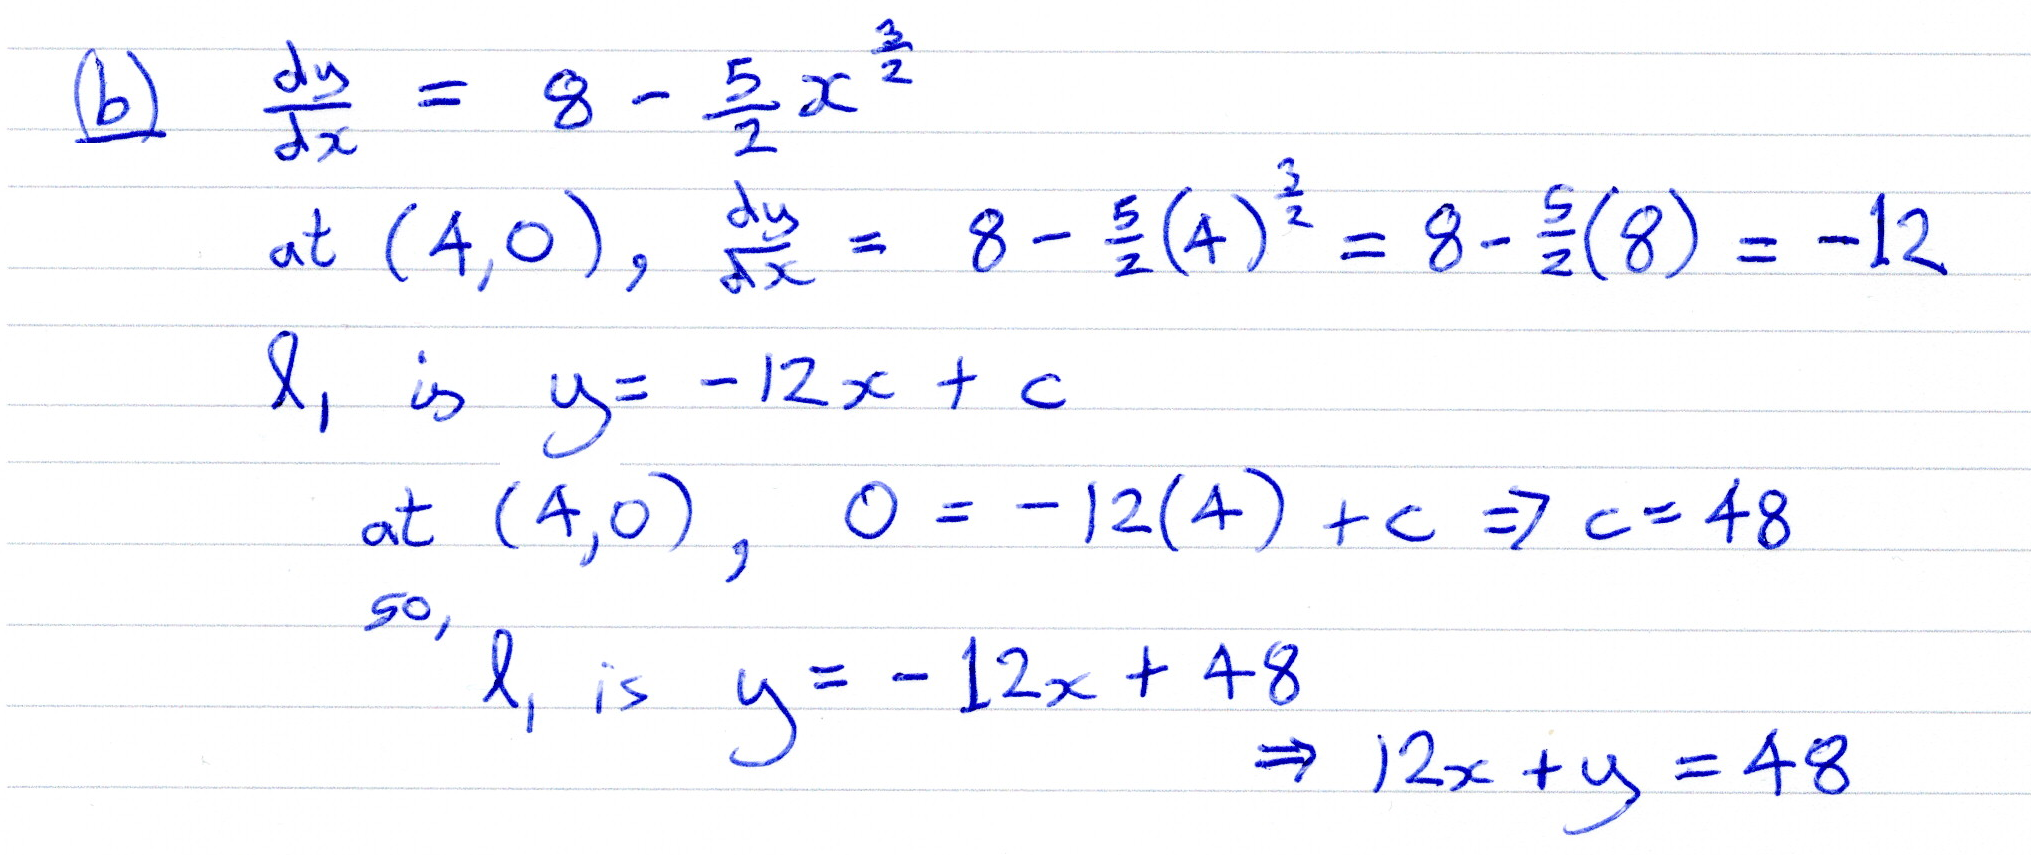 (b) dy/dx = 8 - 5/2 x^(3/2)
at (4,0), dy/dx = 8 - 5/2(4)^(3/2) = 8 - 5/2(8) = -12
l₁ is y = -12x + c
at (4,0), 0 = -12(4) + c ⇒ c = 48
so,
l₁ is y = -12x + 48
⇒ 12x + y = 48